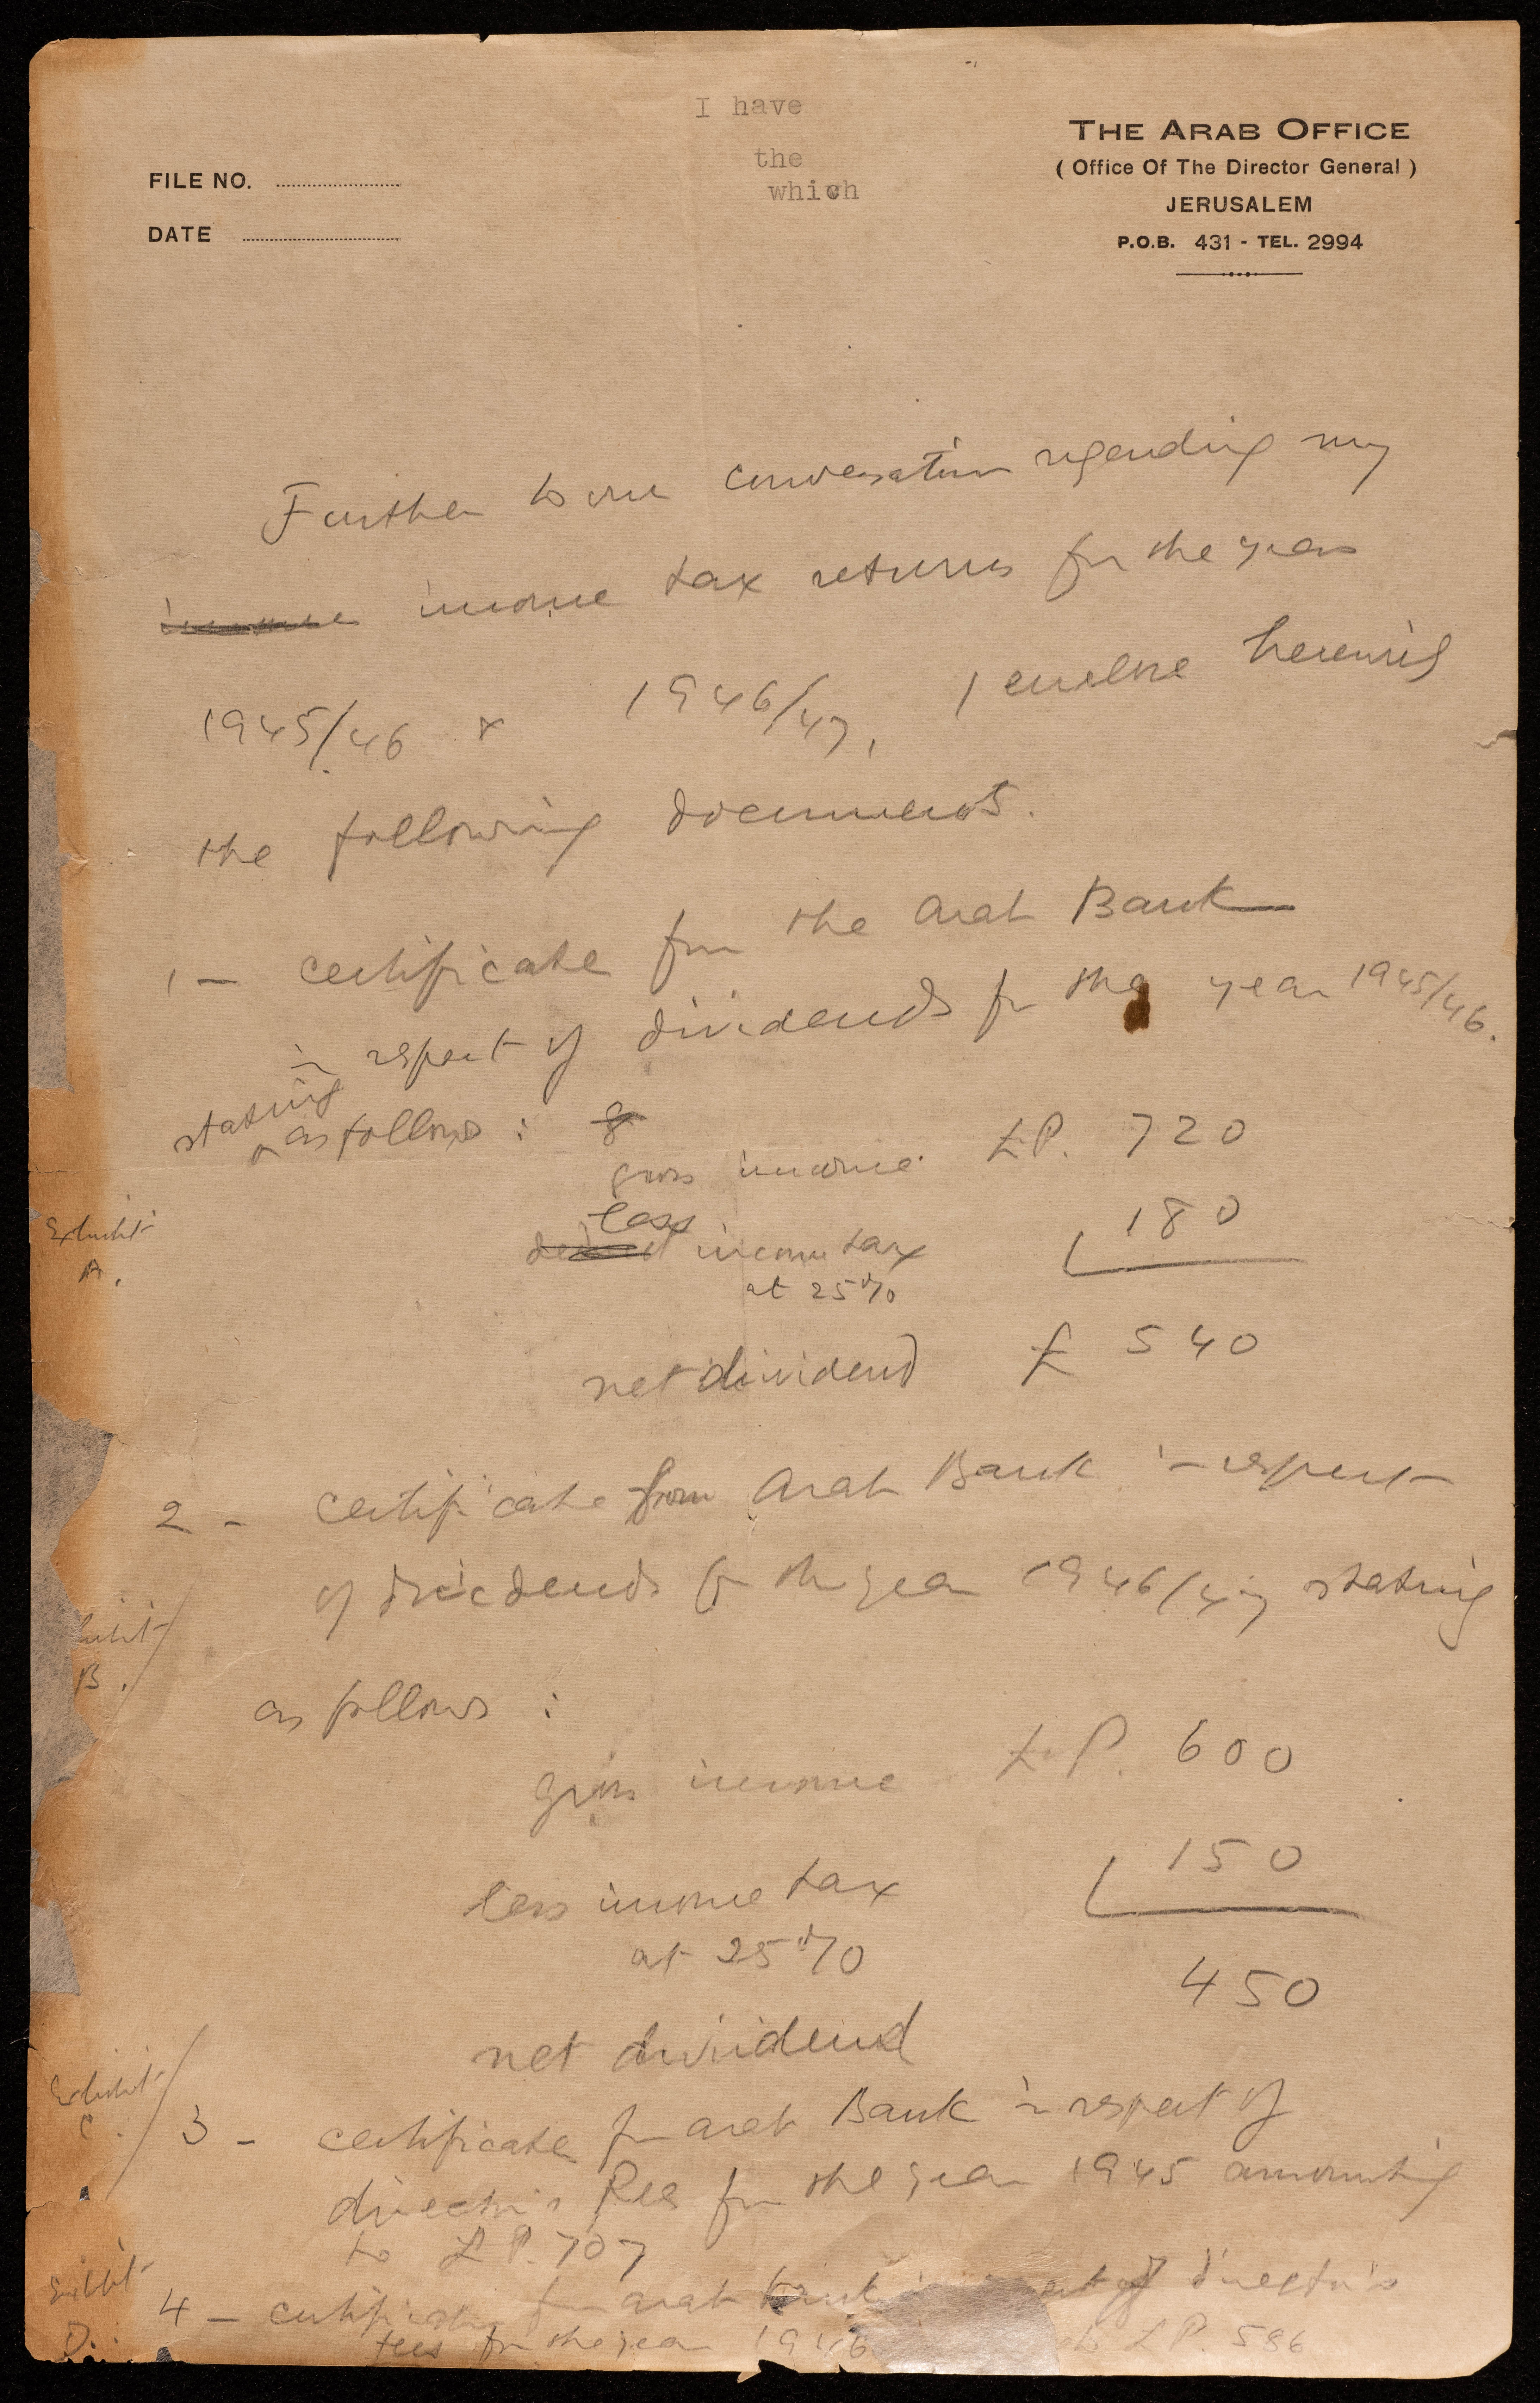 I have
the
which
FILE NO. ....................
DATE ....................
THE ARAB OFFICE
( Office Of The Director General )
JERUSALEM
P.O.B. 431 - TEL. 2994
Further to our conversation regarding my
income income tax returns for the years
1945/46 & 1946/47, I enclose herewith
the following documents.
1 - certificate from the Arab Bank
in respect of dividends for the year 1945/46.
stating as follows :
gross income LP. 720
Exhibit A.
less income tax at 25% 180
net dividend £ 540
2 - certificate from Arab Bank in respect
of dividends for the year 1946/47 stating
B.
as follows :
gross income L.P. 600
less income tax 150
at 25%
450
net dividend
Exhibit C.
3 - certificate from Arab Bank in respect of
director's fees for the year 1945 amounting
to LP. 707
Exhibit D.
4 - certificate from Arab bank of director's
fees for the year 1946 LP. 586